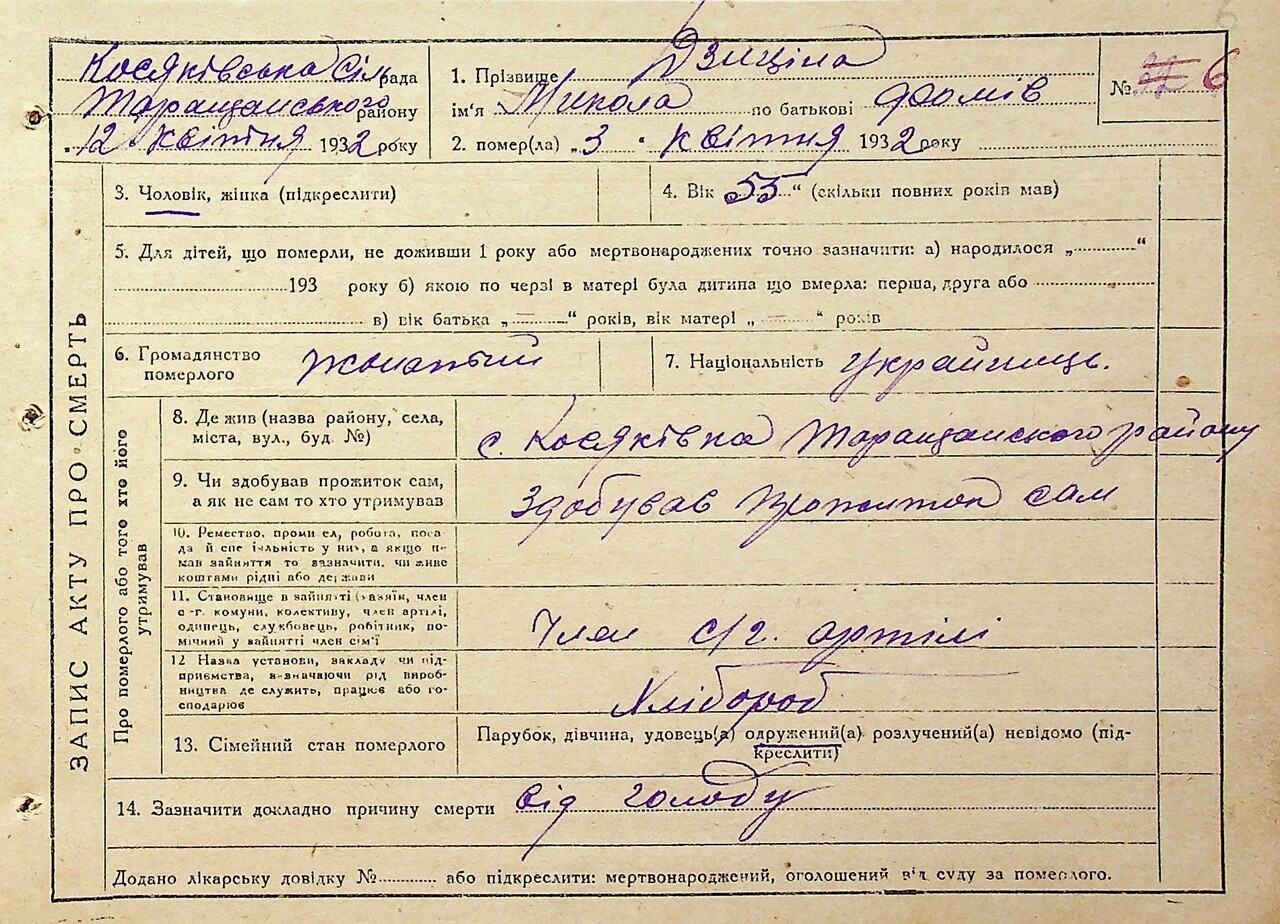 Косяківська Сіль рада
Таращанського району
"12" Квітня 1932 року
1. Прізвище Дзиціла
ім'я Микола по батькові Фомів
2. помер(ла) „3" Квітня 1932 року
№ 6
ЗАПИС АКТУ ПРО СМЕРТЬ
3. Чоловік, жінка (підкреслити)
4. Вік 55" (скільки повних років мав)
5. Для дітей, що померли, не доживши 1 року або мертвонароджених точно зазначити: а) народилося „ "
193 року б) якою по черзі в матері була дитина що вмерла: перша, друга або
в) вік батька „ — " років, вік матері „ — " років
6. Громадянство
померлого Жонатый
7. Національність Українець.
Про померлого або того хто його
утримував
8. Де жив (назва району, села,
міста, вул., буд. №)
с. Косяківка Таращанского району
9. Чи здобував прожиток сам,
а як не сам то хто утримував
Здобував прожиток сам
10. Ремество, промисел, робота, поса-
да й спеціяльність у них, а якщо не
мав зайняття то зазначити, чи живе
коштами рідні або держави
11. Становище в зайнятті (хазяїн, член
с-г. комуни, колективу, член артілі,
одинець, службовець, робітник, по-
мічний у зайнятті член сім'ї
Член с/г. артілі
12 Назва установи, закладу чи під-
приємства, визначаючи рід вироб-
ництва де служить, працює або го-
сподарює
Хлібороб
13. Сімейний стан померлого
Парубок, дівчина, удовець(а) одружений(а) розлучений(а) невідомо (під-
креслити)
14. Зазначити докладно причину смерти від голоду
Додано лікарську довідку № або підкреслити: мертвонароджений, оголошений від суду за померлого.